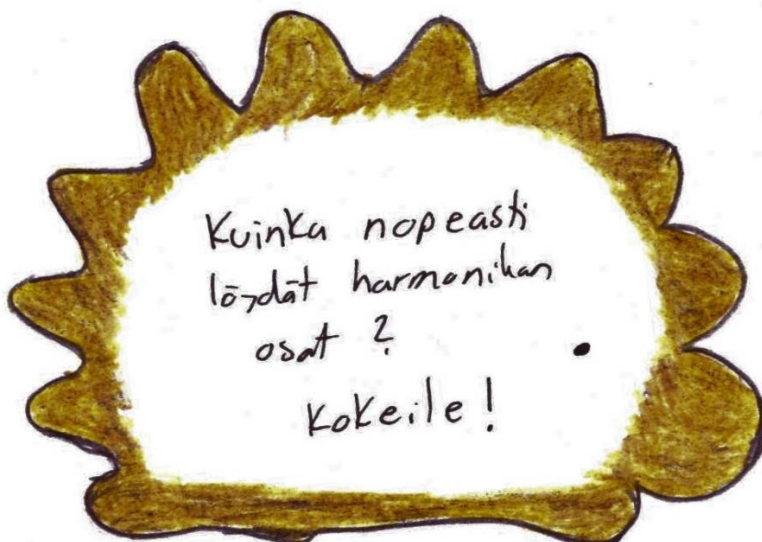 Kuinka nopeasti
löydät harmonikan
osat?
Kokeile!